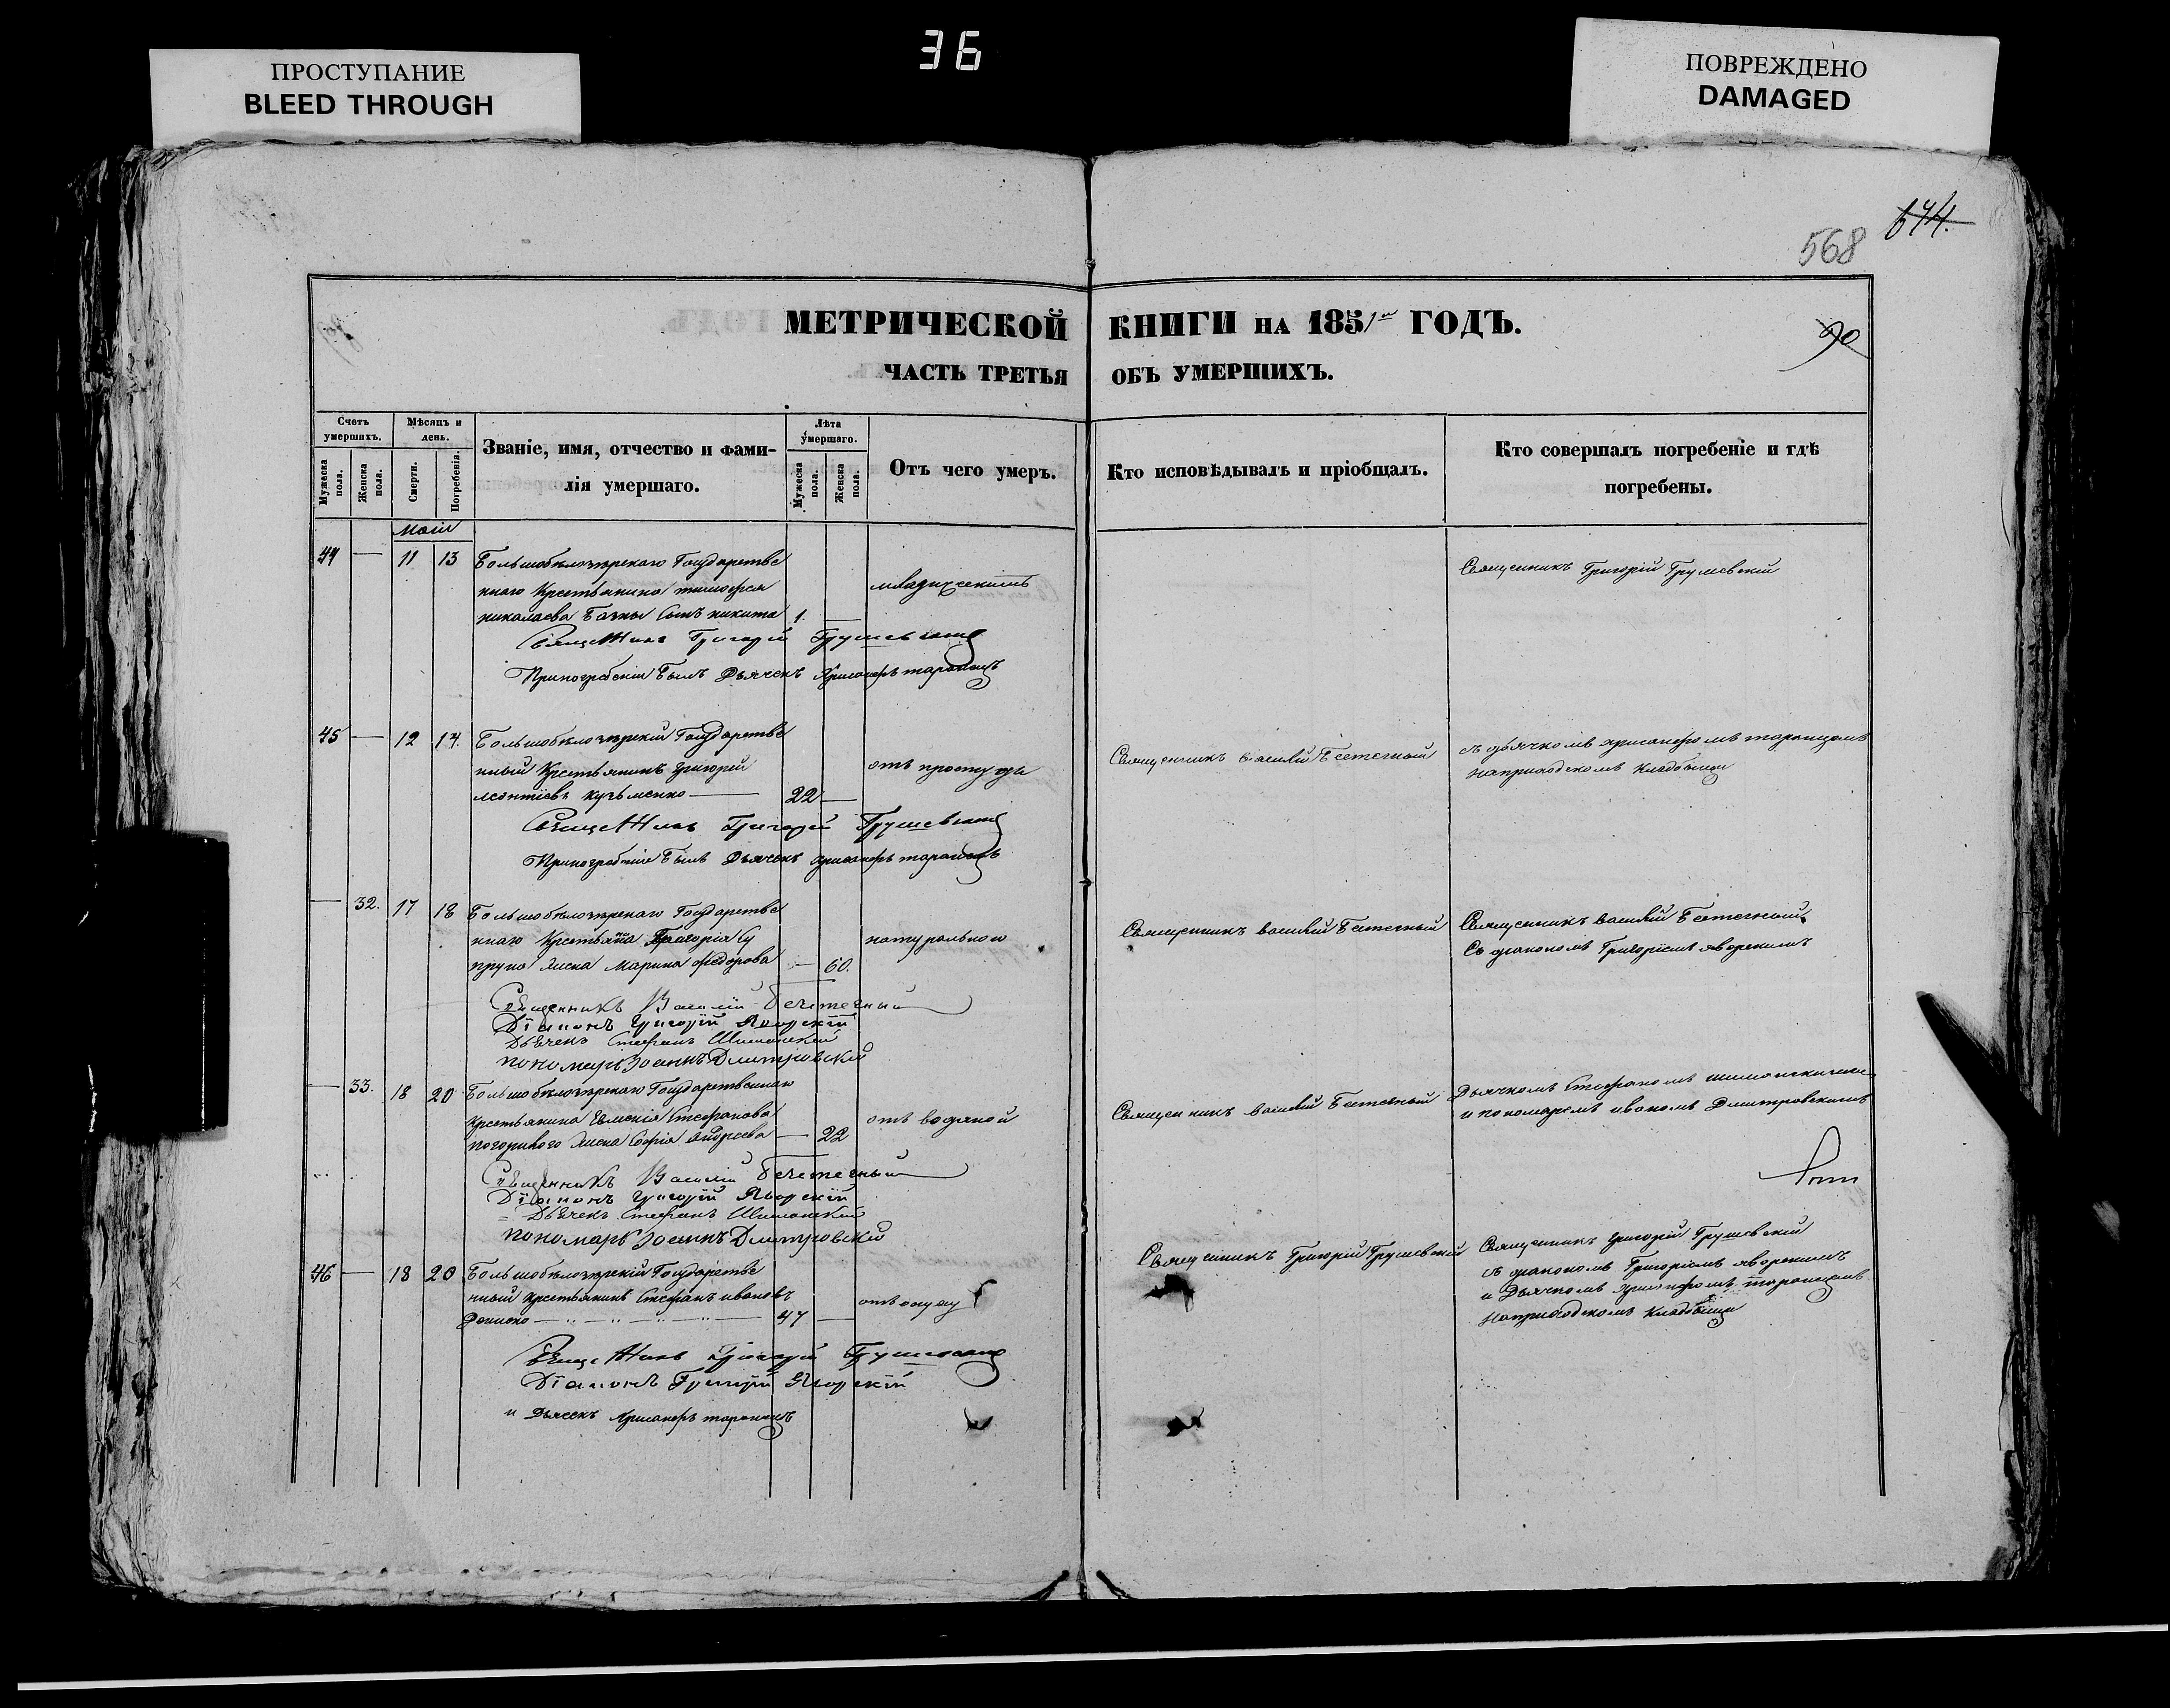 36
ПРОСТУПАНИЕ
BLEED THROUGH
ПОВРЕЖДЕНО
DAMAGED
568
МЕТРИЧЕСКОЙ КНИГИ НА 1851 ГОДЪ.
90
ЧАСТЬ ТРЕТЬЯ ОБЪ УМЕРШИХЪ.
Счетъ умершихъ.
Мужеска пола.
Женска пола.
Мѣсяцъ и день.
Смерти.
Погребенія.
Званіе, имя, отчество и фами-
лія умершаго.
Лѣта умершаго.
Мужеска пола.
Женска пола.
Отъ чего умеръ.
Кто исповѣдывалъ и пріобщалъ.
Кто совершалъ погребеніе и гдѣ
погребены.
маій
44 — 11 13 Большобѣлозѣрскаго Государстве
ннаго Крестьянина тимофея
николаева сынъ никита 1. —
Священникъ Григорій Грушевскій
При погребеніи былъ Дьячекъ Хрисанфъ таранецъ
Священникъ Григорій Грушевскій
45 — 12 14. Большобѣлозѣрскій Государстве
нный Крестьянинъ Григорій отъ простуды
леонтіевъ кузьменко — 22 —
Священникъ Григорій Грушевскій
При погребеніи былъ Дьячекъ хрисанфъ таранецъ
Священникъ василій Бететный
съ дьячкомъ хрисанфомъ таранцомъ
на приходскомъ кладбищи
— 32. 17 18 Большобѣлозѣрскаго Государстве
ннаго Крестьянина Григорія Су
пруна жена Марина федорова — 60.
натуральною
Священникъ Василій Бететный
Діаконъ Григорій Яворскій
Дьячекъ Стефанъ Шиманскій
пономарь Іоаннъ Дмитровскій
Священникъ василій Бететный
Священникъ василій Бететный
Съ діакономъ Григоріемъ яворскимъ
— 33. 18 20 Большобѣлозѣрскаго Государственнаго
Крестьянина Стефанова отъ водяной
жена Софія андреева — 22
Священникъ Василій Бететный
Діаконъ Григорій Яворскій
Дьячекъ Стефанъ Шиманскій
пономарь Іоаннъ Дмитровскій
Священникъ василій Бететный
Дьячкомъ Стефаномъ шиманскимъ
и пономаремъ иваномъ Дмитровскимъ
46 — 18 20 Большобѣлозѣрскій Государстве
нный крестьянинъ Стефанъ ивановъ
— 47 —
Священникъ Григорій Грушевскій
Діаконъ Григорій Яворскій
и Дьячекъ Хрисанфъ таранецъ
Священникъ Григорій Грушевскій
Священникъ Григорій Грушевскій
съ діакономъ Григоріемъ яворскимъ
и Дьячкомъ хрисанфомъ таранцомъ
на приходскомъ кладбищи